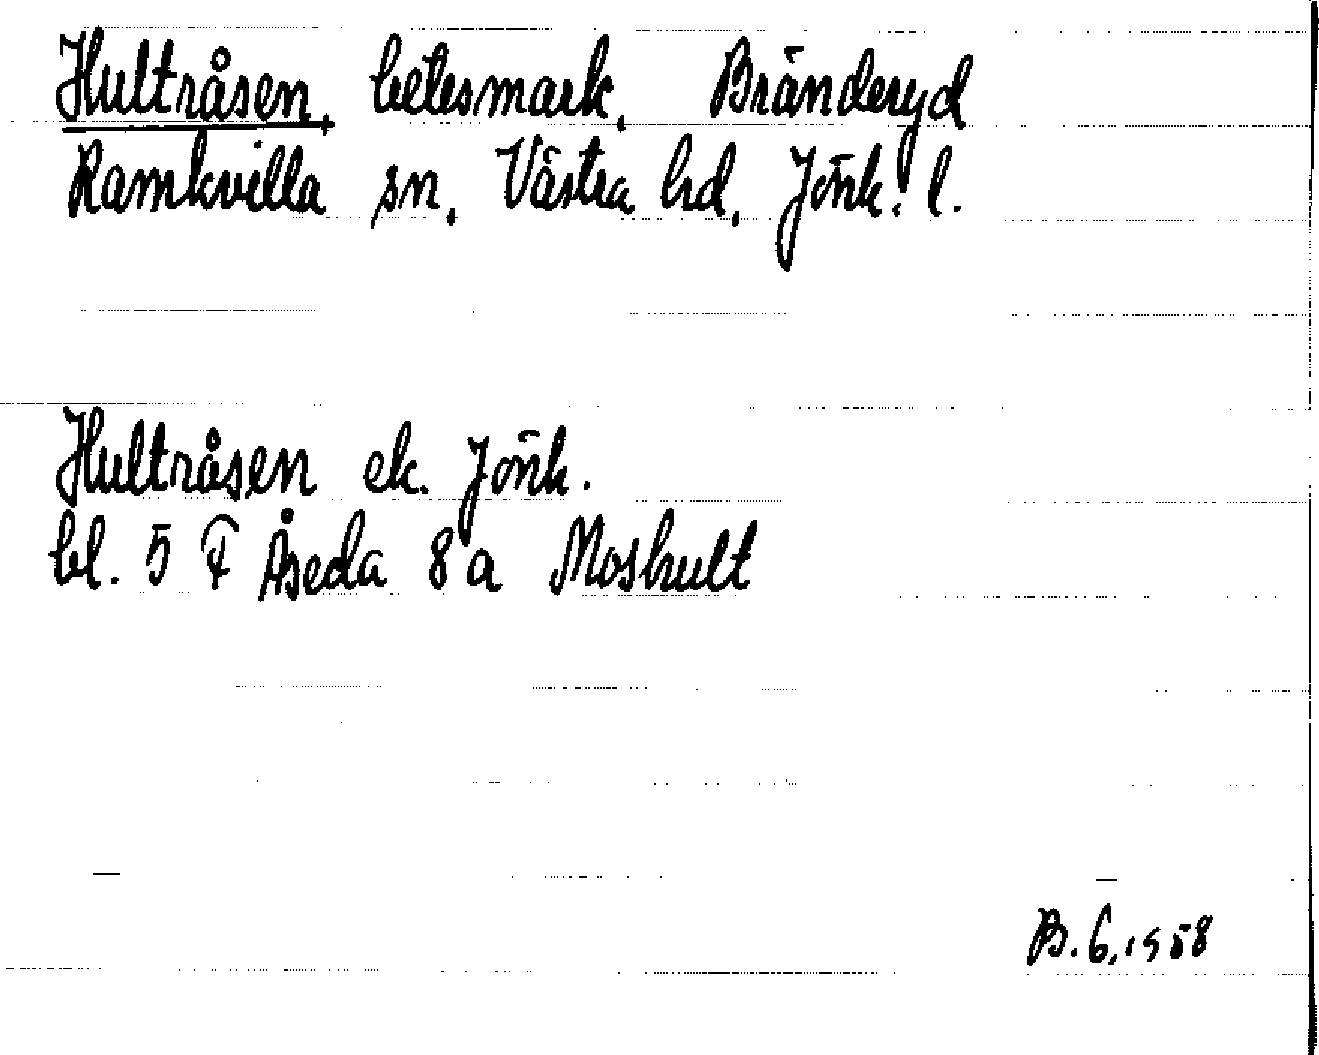 Hultråsen, betesmark, Bränderyd
Ramkvilla sn, Västra hd, Jönk. l.
Hultråsen ek. Jönk.
bl. 5 F Åseda 8 a Moshult
B. 6, 1958